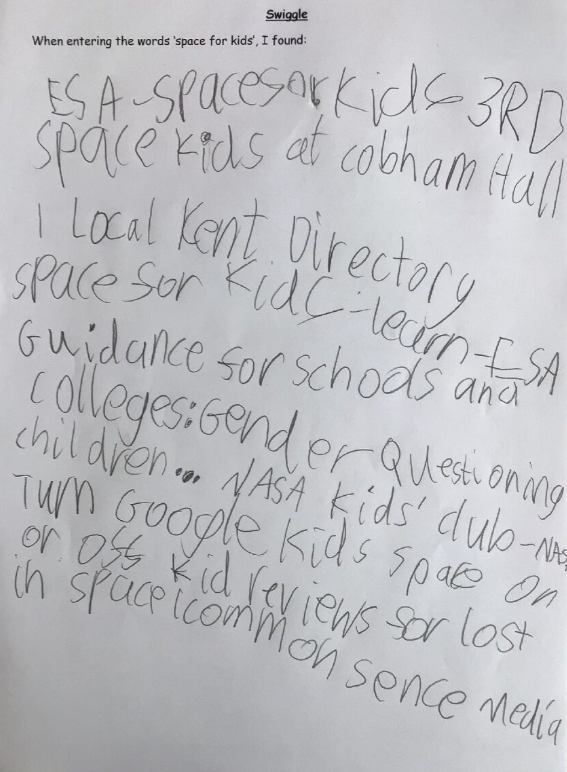 Swiggle
When entering the words 'space for kids', I found:
ESA - space sor kids 3RD
space kids at cobham Hall
| Local Kent Directory
space sor kids - learn - ESA
Guidance sor schools and
colleges: Gender Questioning
children... NASA kids' club - NASA
Turn Google kids space on
or oss kid reviews sor lost
in space | common sence media